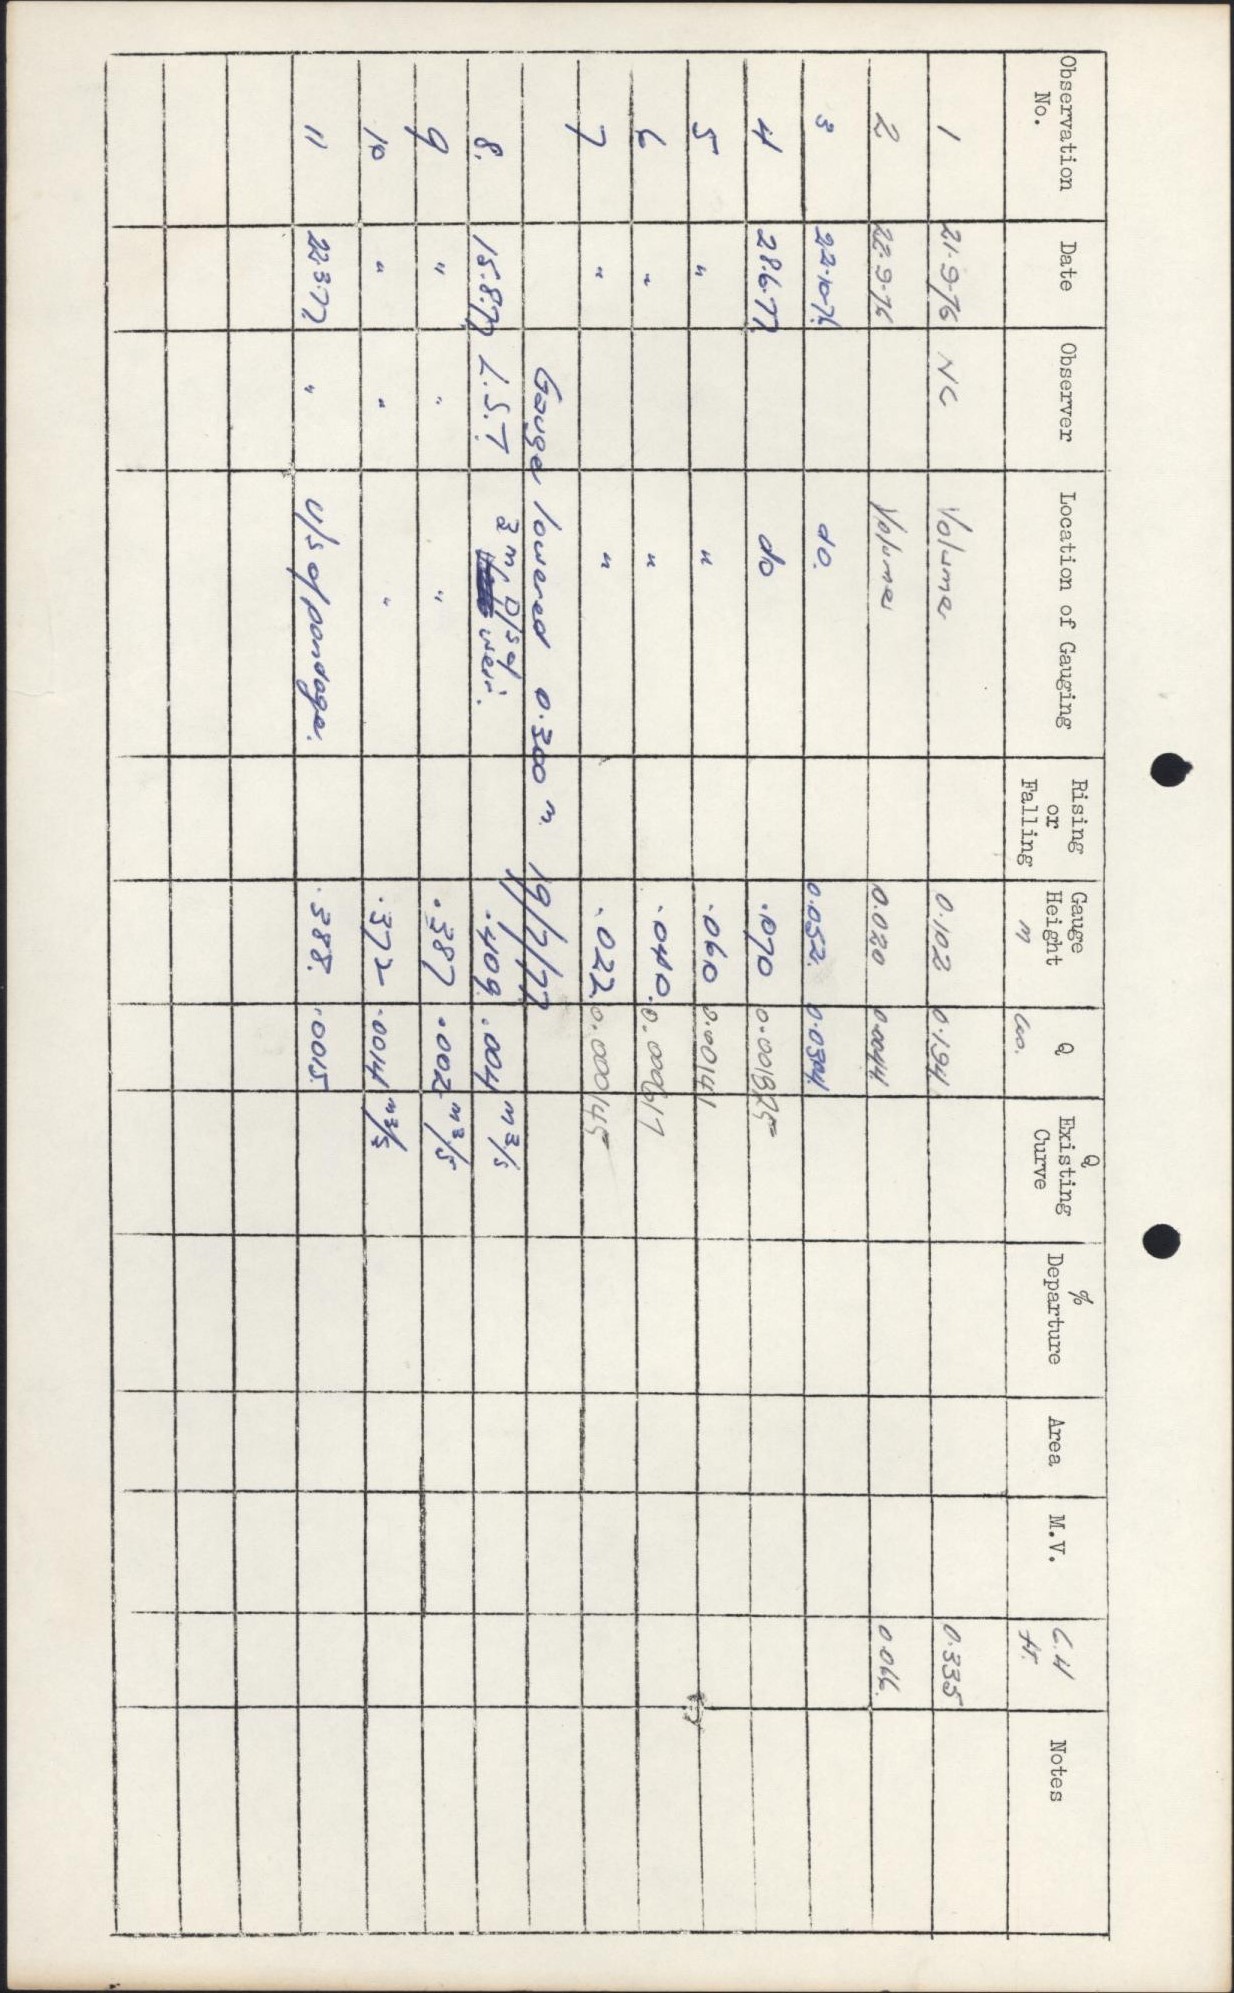 Observation No. Date Observer Location of Gauging Rising or Falling Gauge Height m Q Q Existing Curve % Departure Area M.V. G.H ft. Notes
1 21.9.76 NC Volume 0.102 0.194 0.335
2 22.9.76 Volume 0.020 0.0044 0.066.
3 22.10.76 do. 0.052.
4 28.6.77 do .070 0.001825
5 " " .060 0.00141
6 " " .040. 0.000617
7 " " .022. 0.000145
Gauge lowered 0.300 m. 19/7/77
8. 15.8.77 L.S.T. 3 m D/s of weir. .409. .004 m3/s
9 " " " .387 .002 m3/s
10 " " " .372 .0014 m3/s
11 22.3.77 " U/s of pondage. .388. .0015.